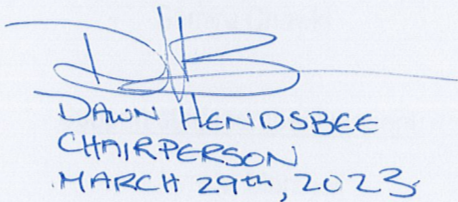 DAWN HENDSBEE
CHAIRPERSON
MARCH 29th, 2023